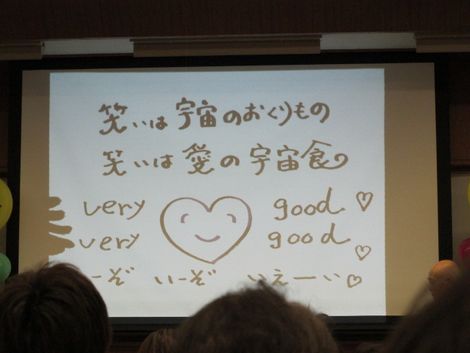 笑いは宇宙のおくりもの
笑いは愛の宇宙食
very good♡
very good♡
いーぞ いーぞ いぇーい♡